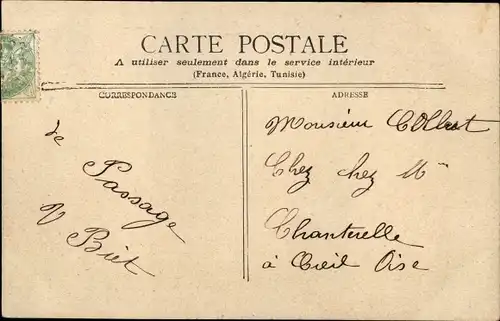 CARTE POSTALE
A utiliser seulement dans le service intérieur
(France, Algérie, Tunisie)
CORRESPONDANCE
ADRESSE
de
Passage
Biet
Monsieur
Chez chez Mr
Chanterelle
à Creil Oise